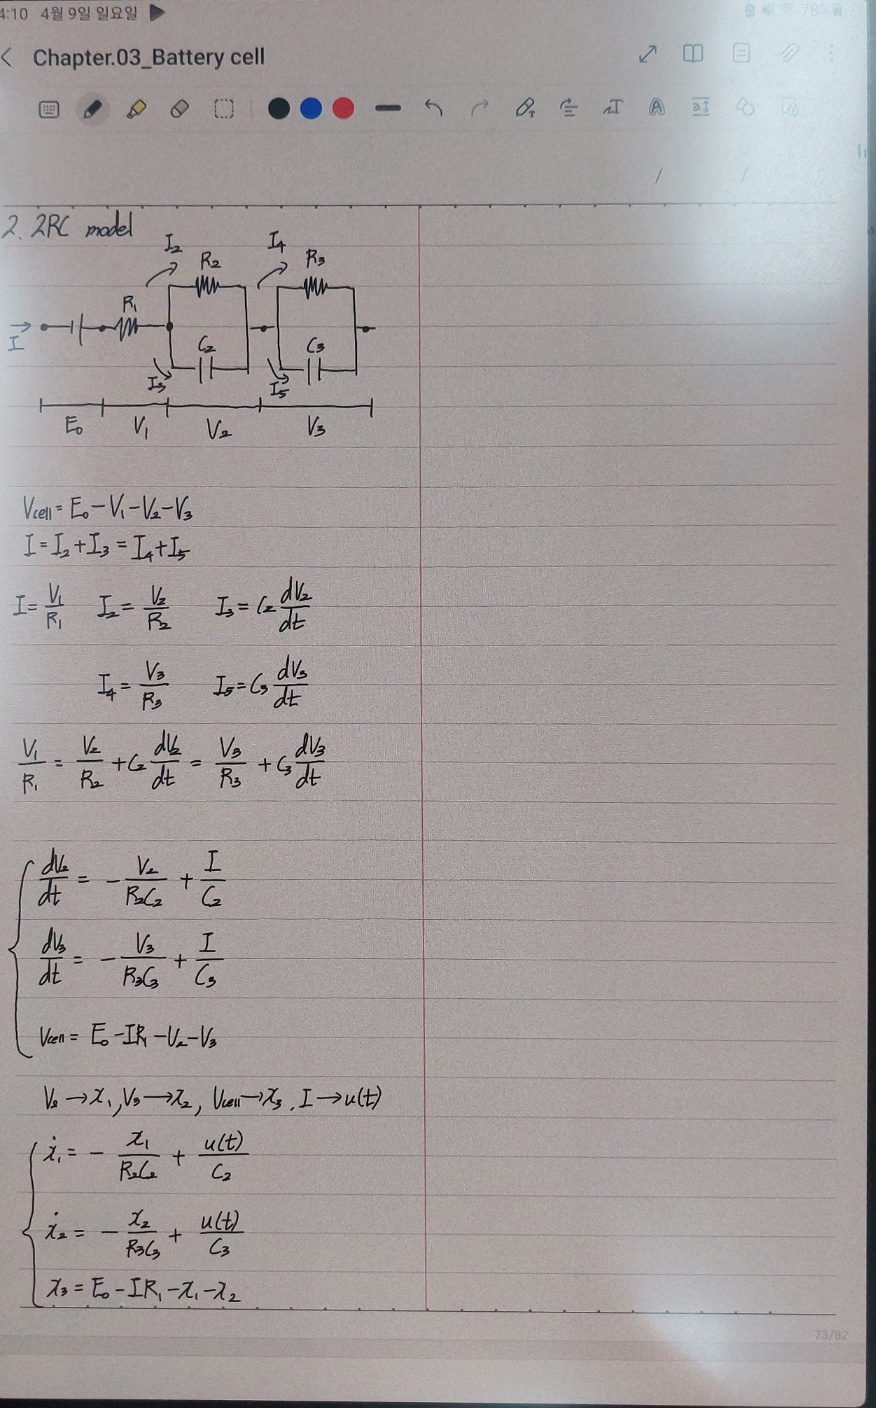 4:10 4월 9일 일요일
78%
Chapter.03_Battery cell
2. 2RC model
I₂ R₂ I₄ R₃
R₁
I
C₂ C₃
I₃ I₅
E₀ V₁ V₂ V₃
Vcell = E₀ - V₁ - V₂ - V₃
I = I₂ + I₃ = I₄ + I₅
I = V₁/R₁ I₂ = V₂/R₂ I₃ = C₂ dV₂/dt
I₄ = V₃/R₃ I₅ = C₃ dV₃/dt
V₁/R₁ = V₂/R₂ + C₂ dV₂/dt = V₃/R₃ + C₃ dV₃/dt
dV₂/dt = - V₂/R₂C₂ + I/C₂
dV₃/dt = - V₃/R₃C₃ + I/C₃
Vcell = E₀ - IR₁ - V₂ - V₃
V₂ → x₁, V₃ → x₂, Vcell → x₃, I → u(t)
ẋ₁ = - x₁/R₂C₂ + u(t)/C₂
ẋ₂ = - x₂/R₃C₃ + u(t)/C₃
x₃ = E₀ - IR₁ - x₁ - x₂
73/82